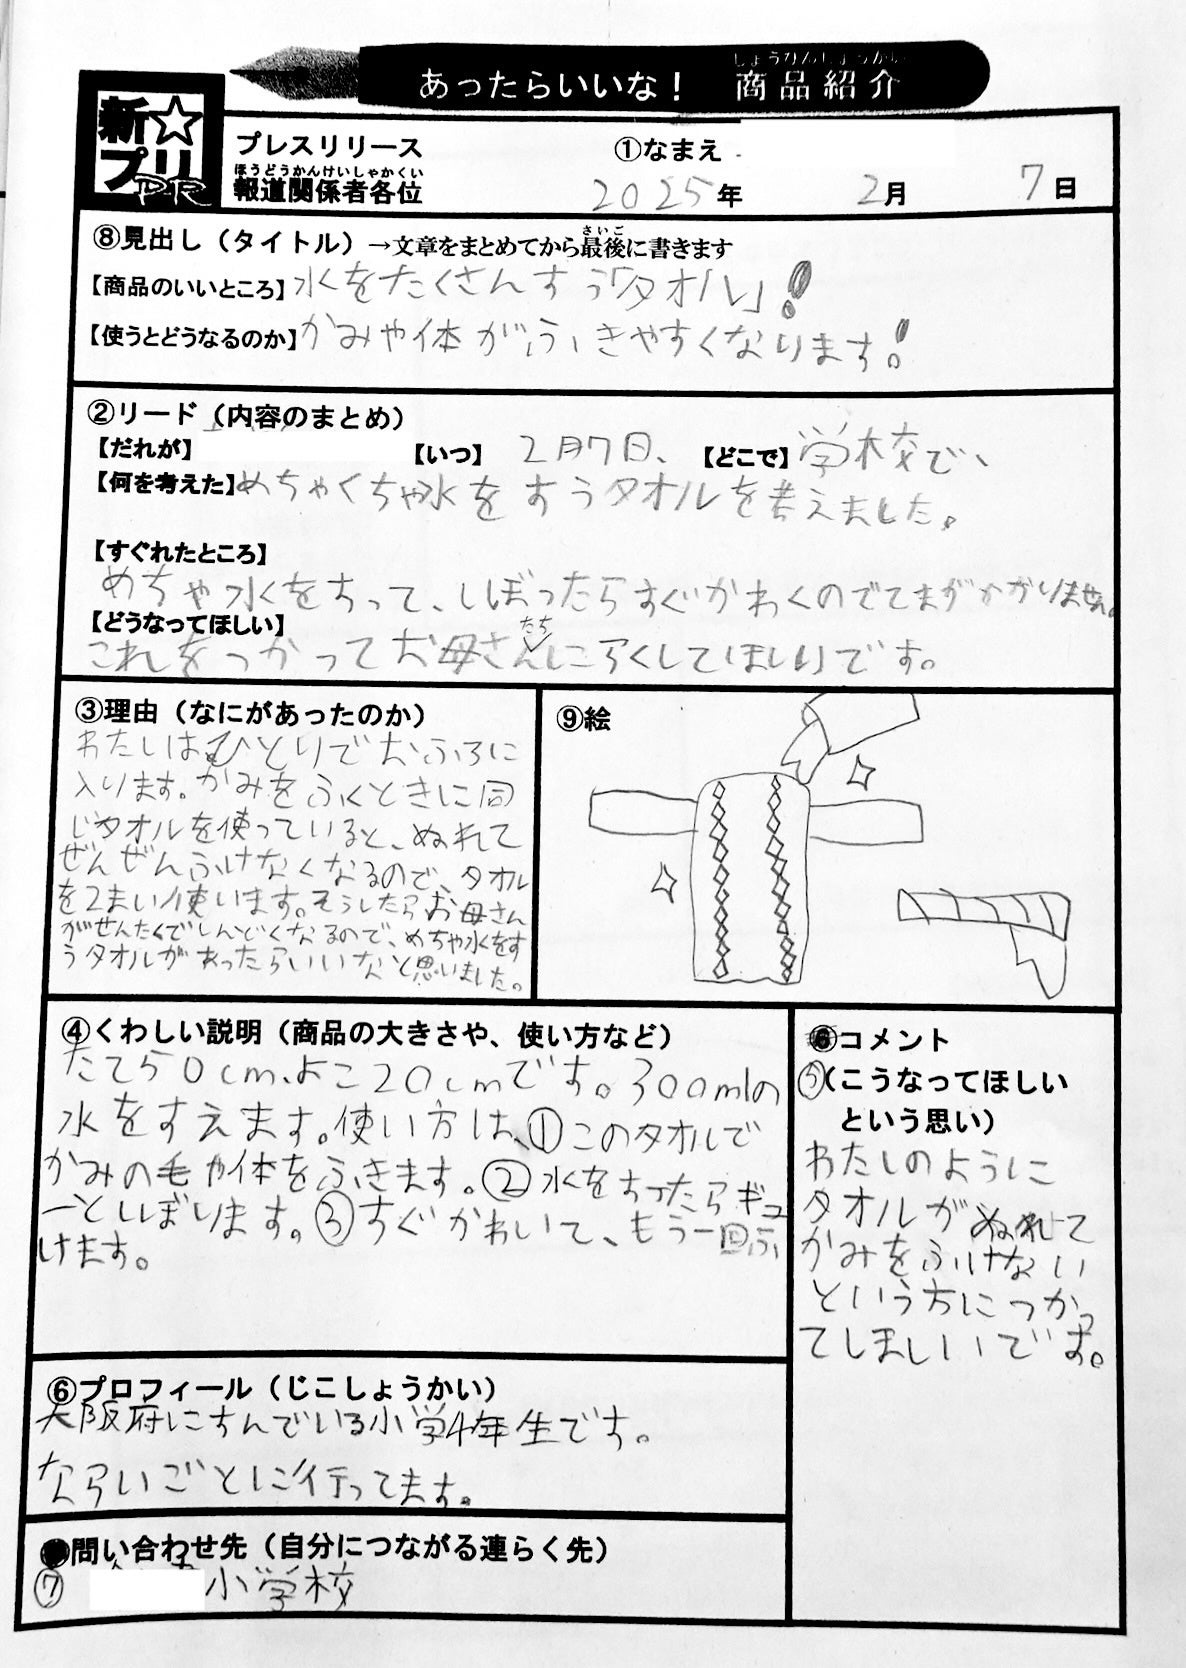 しょうひんしょうかい
あったらいいな！ 商品紹介
新☆プリPR
プレスリリース
ほうどうかんけいしゃかくい
報道関係者各位
①なまえ
2025年 2月 7日
⑧見出し（タイトル）→文章をまとめてから最後に書きます
さいご
【商品のいいところ】水をたくさんすう「タオル」！
【使うとどうなるのか】かみや体がふきやすくなります！
②リード（内容のまとめ）
【だれが】 【いつ】 2月7日、 【どこで】学校で、
【何を考えた】めちゃくちゃ水をすうタオルを考えました。
【すぐれたところ】
めちゃ水をすって、しぼったらすぐかわくのでてまがかかりません。
【どうなってほしい】
これをつかってお母さんたちにらくしてほしいです。
③理由（なにがあったのか）
わたしはひとりでおふろに
入ります。かみをふくときに同
じタオルを使っていると、ぬれて
ぜんぜんふけなくなるので、タオル
を2まい使います。そうしたらお母さん
がせんたくでしんどくなるので、めちゃ水をす
うタオルがあったらいいなと思いました。
⑨絵
④くわしい説明（商品の大きさや、使い方など）
たて50cm、よこ20cmです。300mlの
水をすえます。使い方は、①このタオルで
かみの毛や体をふきます。②水をすったらギュ
ーとしぼります。③すぐかわいて、もう一回ふ
けます。
コメント
⑤（こうなってほしい
という思い）
わたしのように
タオルがぬれて
かみをふけない
という方につかっ
てしほしいです。
⑥プロフィール（じこしょうかい）
大阪府にすんでいる小学4年生です。
ならいごとに行ってます。
問い合わせ先（自分につながる連らく先）
⑦ 小学校